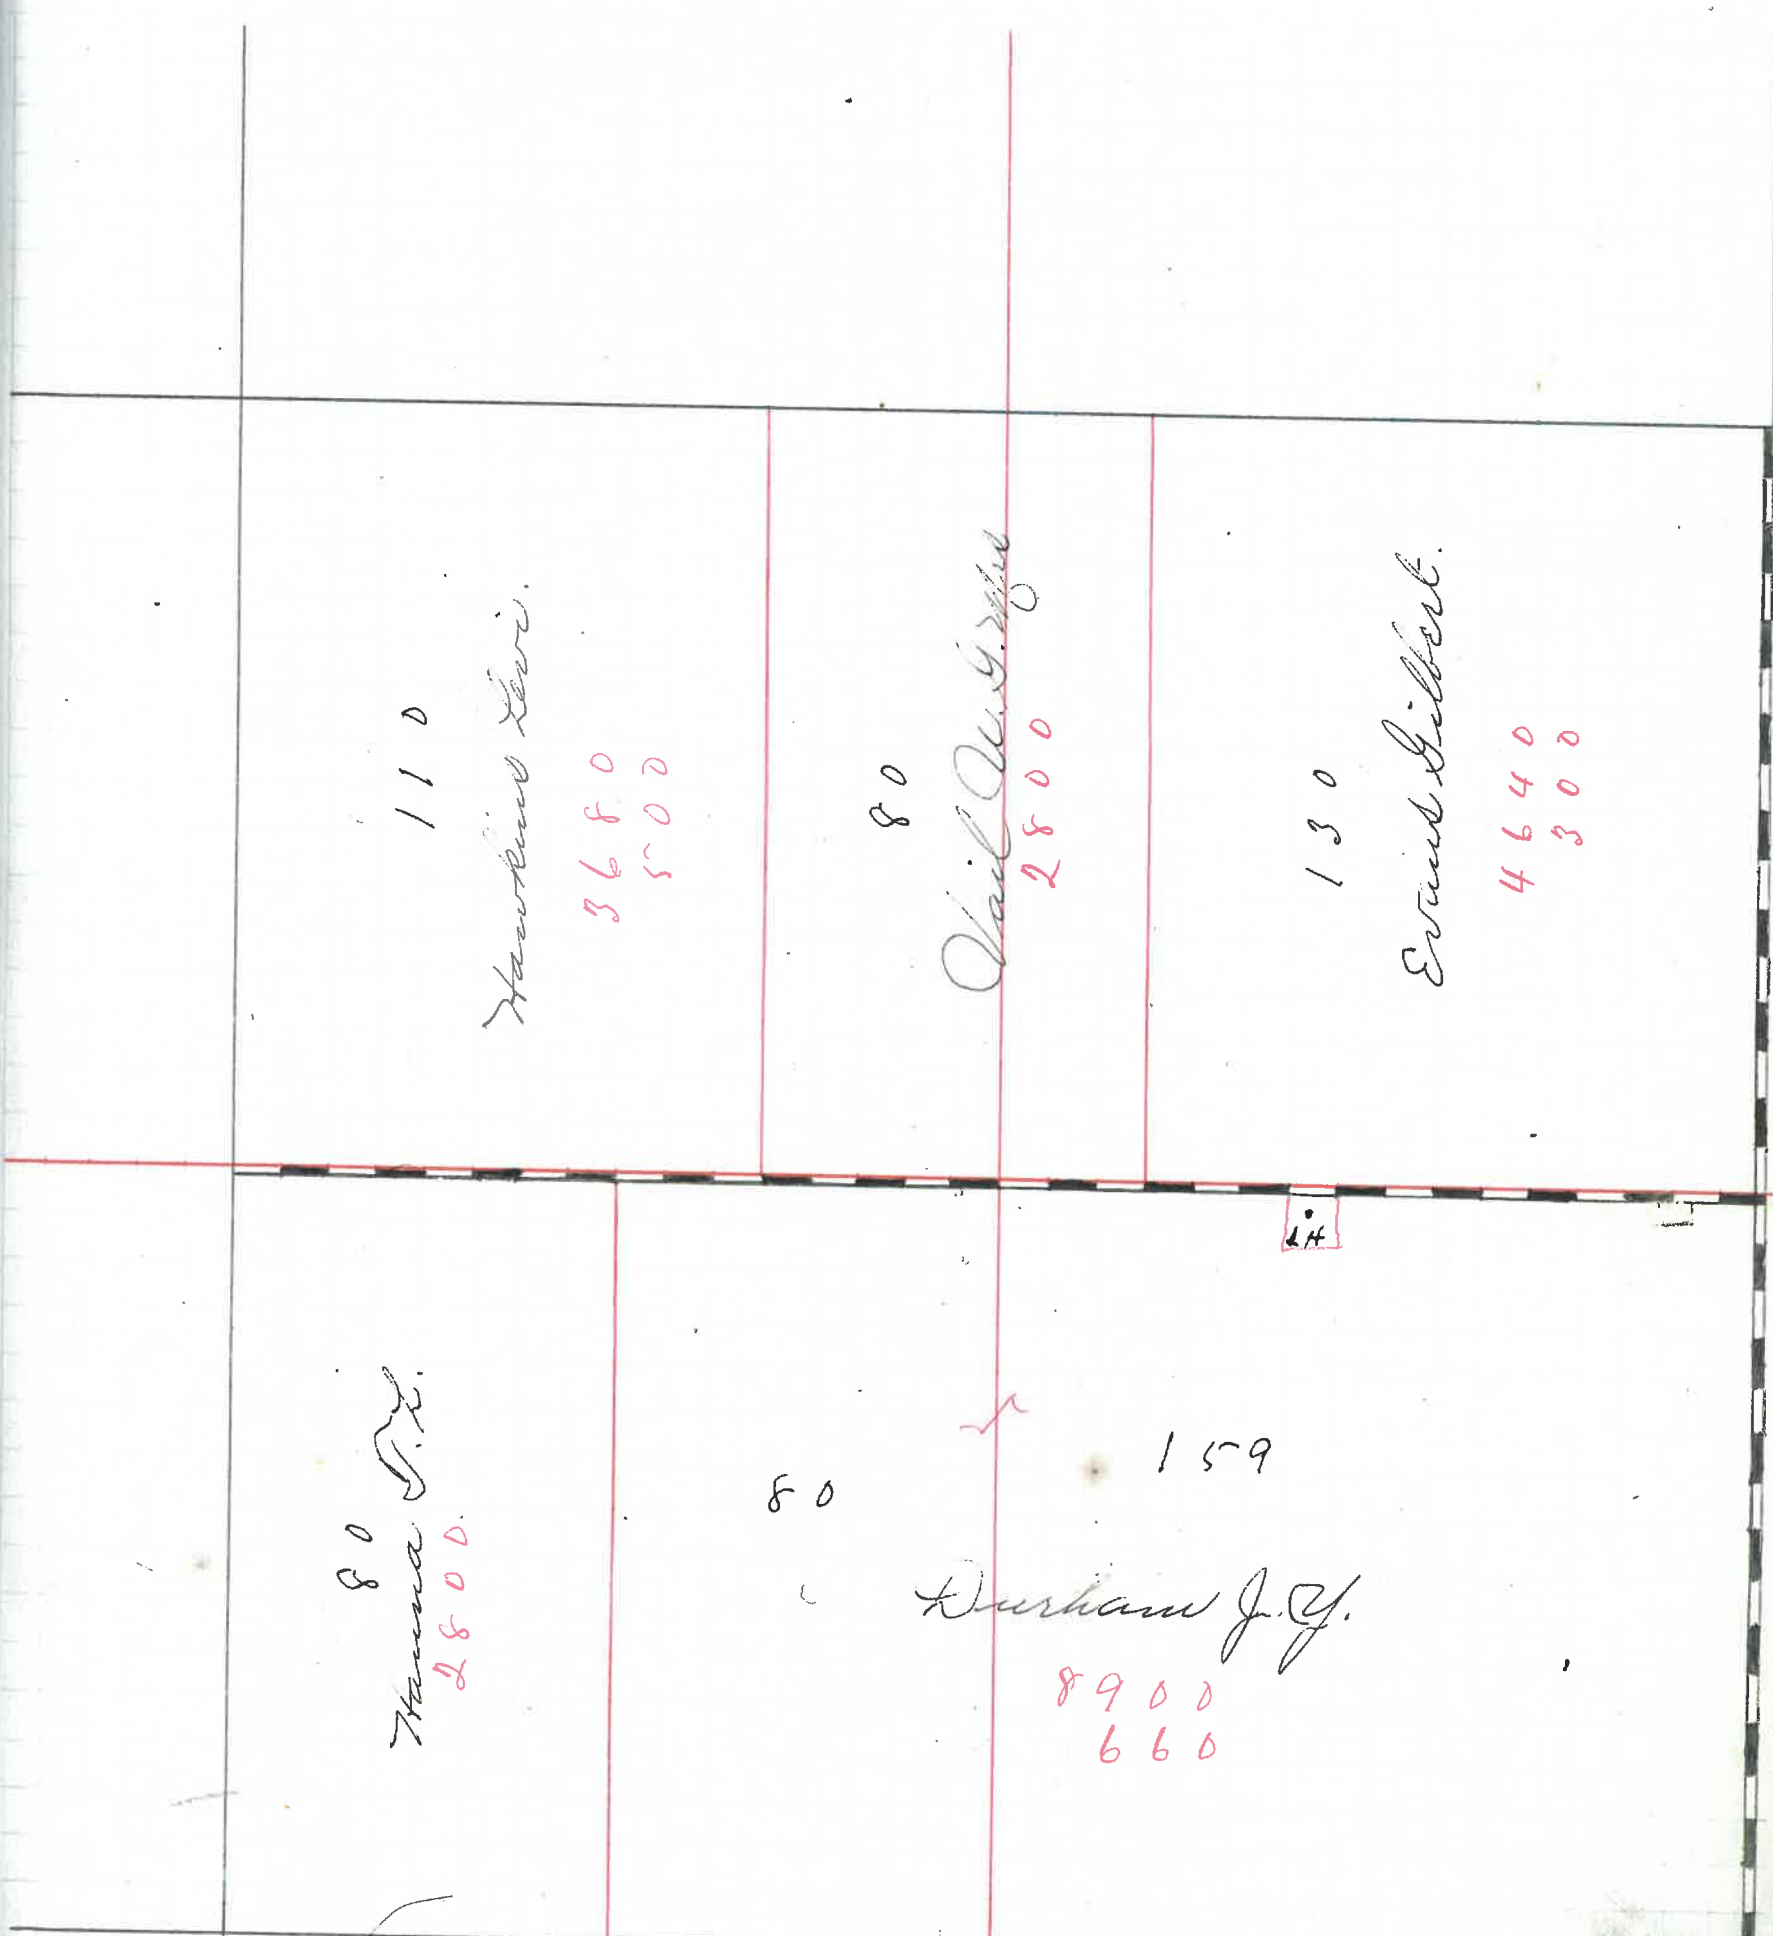 110
Hawkins Levi.
3680
500
80
Vail
2800
130
Evans Gilbert.
4640
300
80
Hanna T. L.
2800.
80
159
Durham J. Y.
8900
660